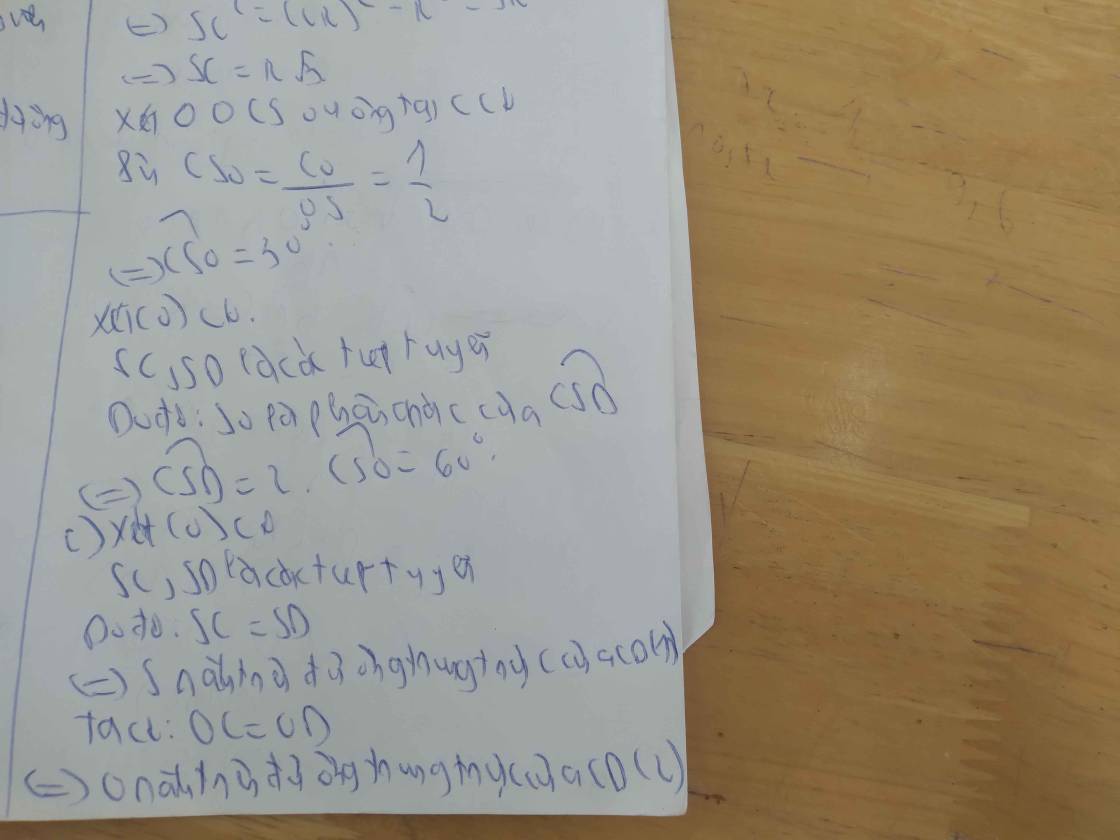 ⇔ SC² = (2R)² - R² = 3R²
⇔ SC = R√3
Xét △ OCS vuông tại C có
Sin CSO = CO/OS = 1/2
⇔ CSO = 30°.
Xét (O) có.
SC, SD là các tiếp tuyến
Do đó: SO là phân giác của CSD
⇔ CSD = 2. CSO = 60°.
c) Xét (O) có
SC, SD là các tiếp tuyến
Do đó: SC = SD
⇔ S nằm trên đường trung trực của CD (1)
Ta có: OC = OD
⇔ O nằm trên đường trung trực của CD (2)